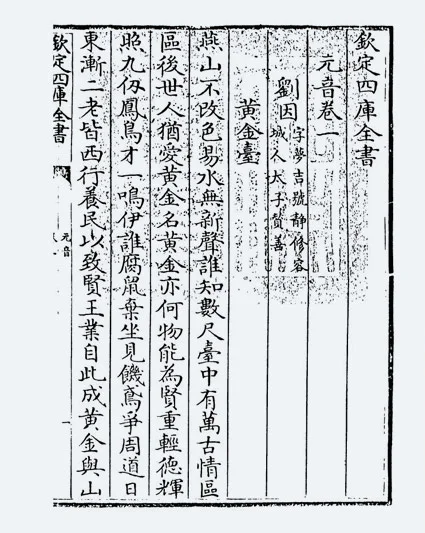 欽定四庫全書
元音卷一
劉因字夢吉號靜修容
城人太子贊善
黃金臺
燕山不改色易水無新聲誰知數尺臺中有萬古情區
區後世人猶愛黃金名黃金亦何物能為賢重輕德輝
照九仭鳳鳥才一鳴伊誰腐鼠棄坐見饑鳶爭周道日
東漸二老皆西行養民以致賢王業自此成黃金與山
欽定四庫全書
元音
一